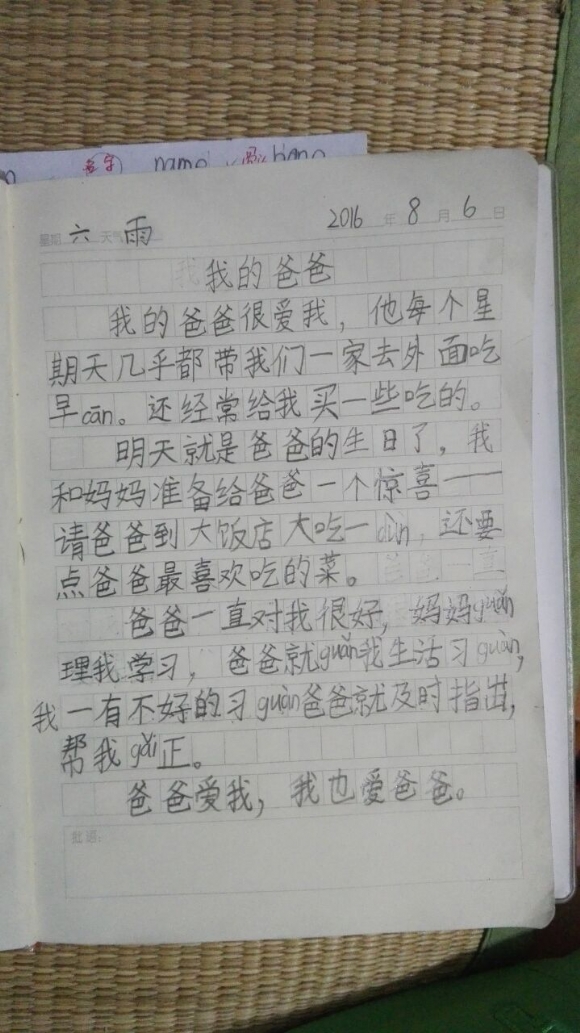 name
星期 六 天气 雨 2016 年 8 月 6 日
我的爸爸
我的爸爸很爱我，他每个星
期天几乎都带我们一家去外面吃
早cān。还经常给我买一些吃的。
明天就是爸爸的生日了，我
和妈妈准备给爸爸一个惊喜——
请爸爸到大饭店大吃一dùn，还要
点爸爸最喜欢吃的菜。
爸爸一直对我很好，妈妈guǎn
理我学习，爸爸就guǎn我生活习guàn，
我一有不好的习guàn爸爸就及时指出，
帮我gǎi正。
爸爸爱我，我也爱爸爸。
批语：